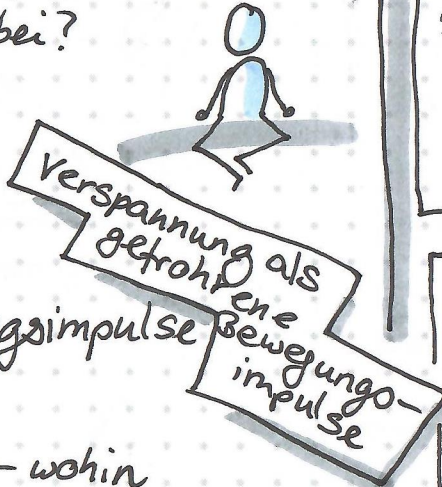 bei?
Verspannung als
gefrohrene
Bewegungs-
impulse
gsimpulse
- wohin